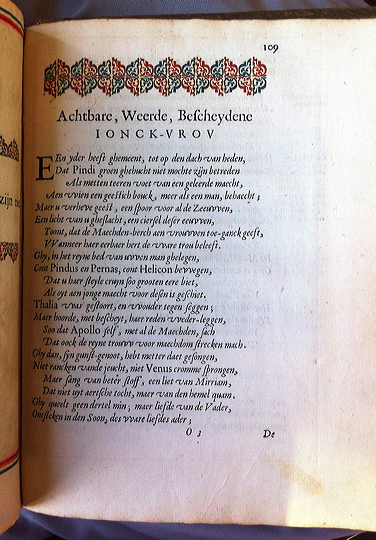 109
Achtbare, Weerde, Bescheydene
IONCK-VROV
EEn yder heeft ghemeent, tot op den dach van heden,
Dat Pindi groen ghebucht niet mochte zijn betreden
Als metten teeren voet van een geleerde maecht,
Aen wien een geestich bouck, meer als een man, behaecht;
Maer u verheve geest, een spoor voor al de Zeeuwen,
Een licht van u geslacht, een ciersel deser eeuwen,
Toont, dat de Maechden-berch aen vrouwen toe-ganck geeft,
VVanneer haer eerbaer hert de ware trou beleeft.
Ghy, in het reyne bed van uwen man ghelegen,
Cont Pindus en Pernas, cont Helicon bewegen,
Dat u haer steyle cruyn soo grooten eere biet,
Als oyt aen jonge maecht voor desen is geschiet.
Thalia was gestoort, en wouder tegen seggen;
Maer hoorde, met bescheyt, haer reden weder-leggen,
Soo dat Apollo self, met al de Maechden, sach
Dat oock de reyne trouw voor maechdom strecken mach.
Ghy dan, sijn gunst-genoot, hebt metter daet gesongen,
Niet rancken vande jeucht, niet Venus cromme sprongen,
Maer sang van beter stoff, een liet van Mirriam,
Dat niet uyt aertsche tocht, maer van den hemel quam.
Ghy queelt geen dertel min; maer liefde van de Vader,
Ontsteken in den Soon, des ware liefdes ader;
O 3
De
zijn